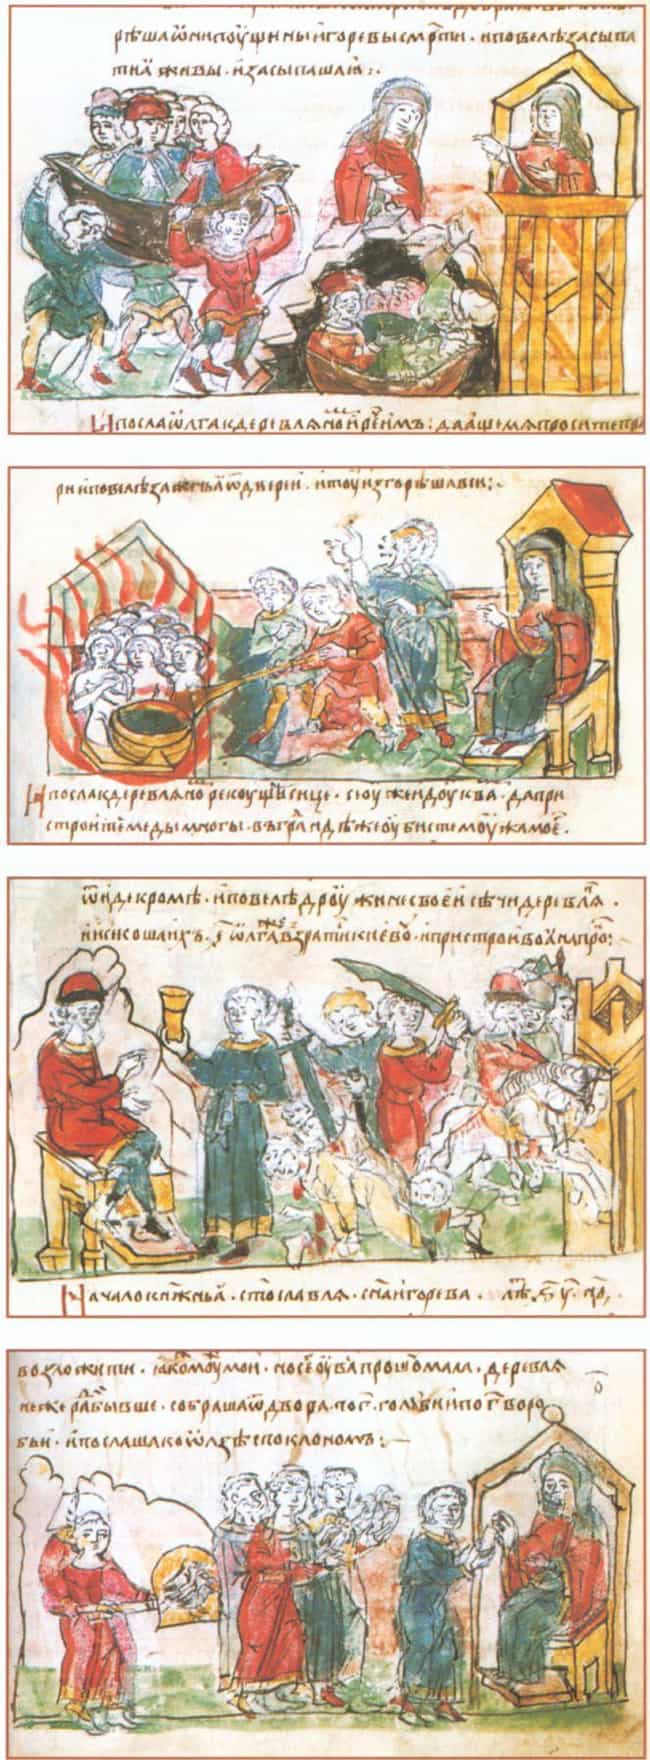 рѣша ѿ ни пꙋщи ны игоревы см҃рти · и повелѣ засыпа
ти ꙗ живы · и засыпаша ꙗ :·
И посла ѡлга к деревлѧно и рече имъ : да аще мѧ просите пр
ри и повелѣ зажещи ѿ двереи · и тоу изгорѣша вси :
И посла к деревлѧно рекоуще сице · се оуже идоу к ва · да при
строите меды многы · въ гра идѣже оубисте моужа моѥ ·
ѿиде кромѣ · и повелѣ дроужине своеи сѣчи деревлѧ ·
и исикоша ихъ · ҂е ѡлга же възратис киевоу · и пристрои вои на про :
Начало кнѧжьꙗ · стославлѧ · сна игорева · лѣ ҂ѕ у
возложити · ꙗко моу мои · но се оу ва прошю мала · деревлѧ
не же ради бывше · собраша ѿ двора по г голоуби и по г воро
бьи · и послаша ко ѡлзѣ с поклономъ :